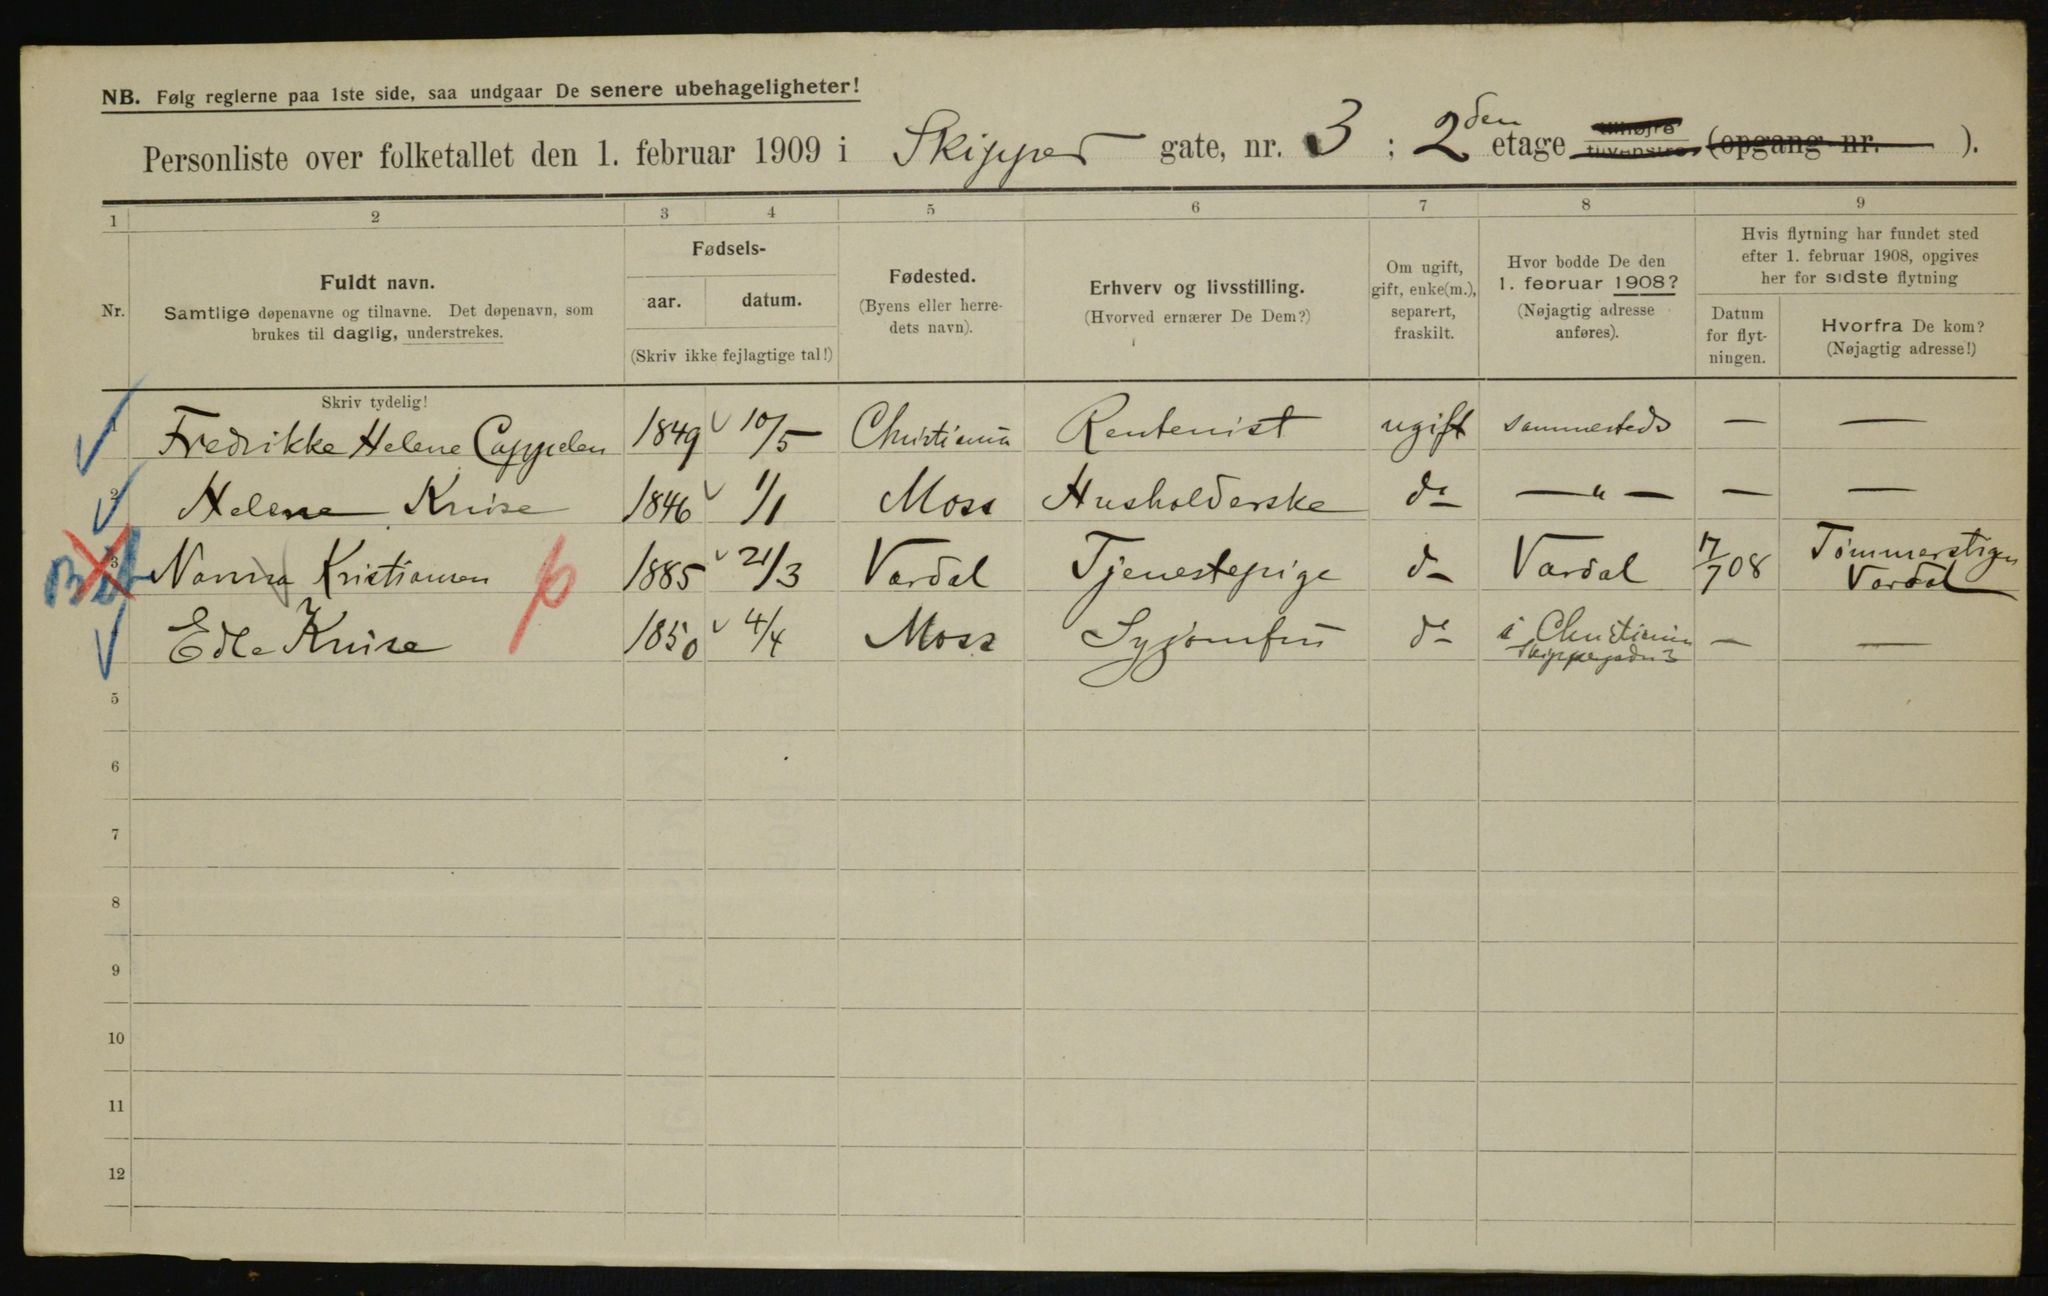 NB. Følg reglerne paa 1ste side, saa undgaar De senere ubehageligheter!
Personliste over folketallet den 1. februar 1909 i Skipper gate, nr. 3 ; 2den etage tilhøjre tilvenstre (opgang nr. ).
1 2 3 4 5 6 7 8 9
Nr.
Fuldt navn.
Samtlige døpenavne og tilnavne. Det døpenavn, som
brukes til daglig, understrekes.
Fødsels-
aar. datum.
(Skriv ikke fejlagtige tal!)
Fødested.
(Byens eller herre-
dets navn).
Erhverv og livsstilling.
(Hvorved ernærer De Dem?)
Om ugift,
gift, enke(m.),
separert,
fraskilt.
Hvor bodde De den
1. februar 1908?
(Nøjagtig adresse
anføres).
Hvis flytning har fundet sted
efter 1. februar 1908, opgives
her for sidste flytning
Datum
for flyt-
ningen.
Hvorfra De kom?
(Nøjagtig adresse!)
Skriv tydelig!
Fredrikke Helene Cappelen 1849 10/5 Christiania Rentenist ugift sammesteds — —
2 Helene Kruse 1846 1/1 Moss Husholderske do — " — — —
3 Nanna Kristiansen 1885 21/3 Vardal Tjenestepige do Vardal 17/7 08 Tømmerstigen Vardal
Edle Kruse 1850 4/4 Moss Syjomfru do i Christiania Skippergaden 3 — —
5
6
7
8
9
10
11
12